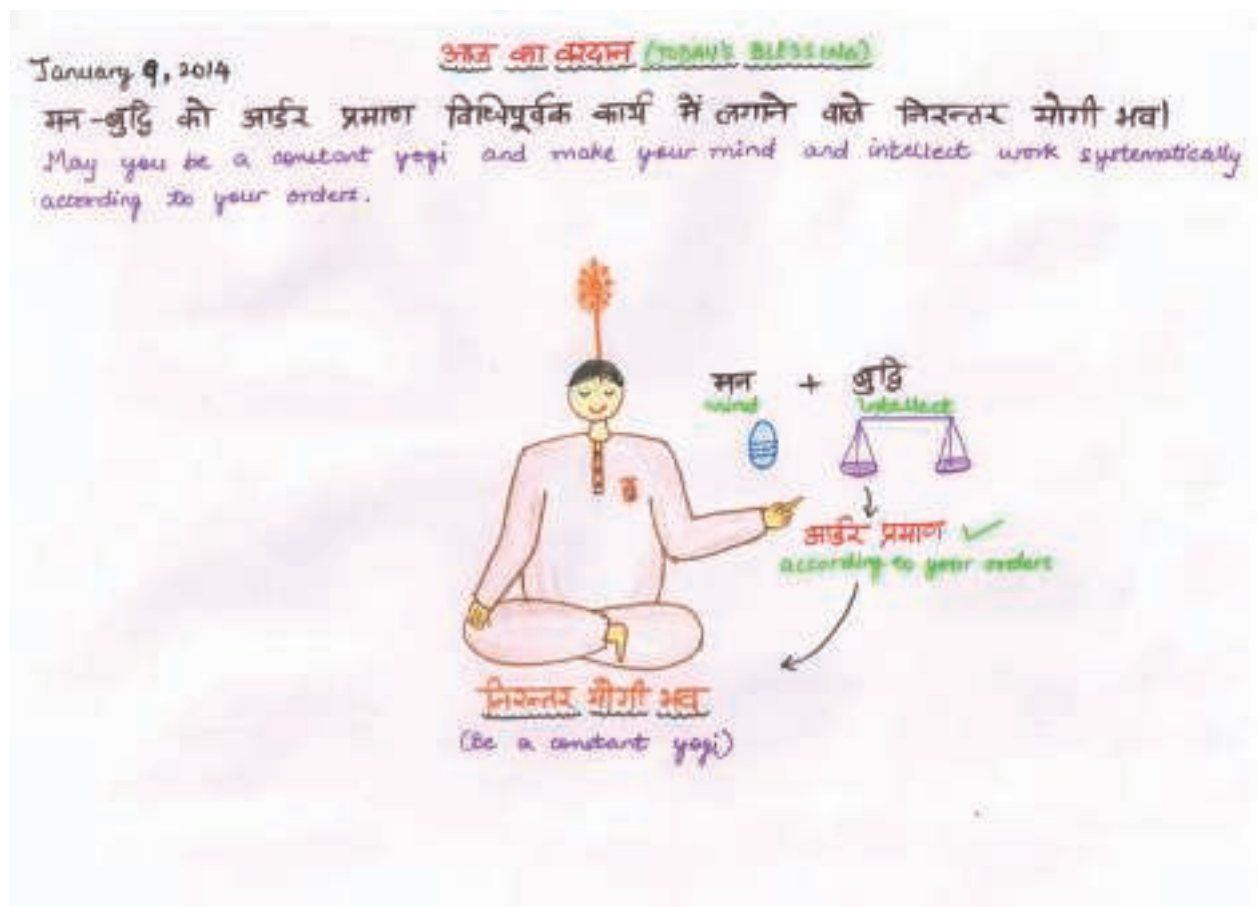 आज का वरदान (TODAY'S BLESSING)
January 9, 2014
मन-बुद्धि को आर्डर प्रमाण विधिपूर्वक कार्य में लगाने वाले निरन्तर योगी भव।
May you be a constant yogi and make your mind and intellect work systematically
according to your orders.
मन + बुद्धि
mind intellect
आर्डर प्रमाण ✓
according to your orders
निरन्तर योगी भव
(Be a constant yogi)